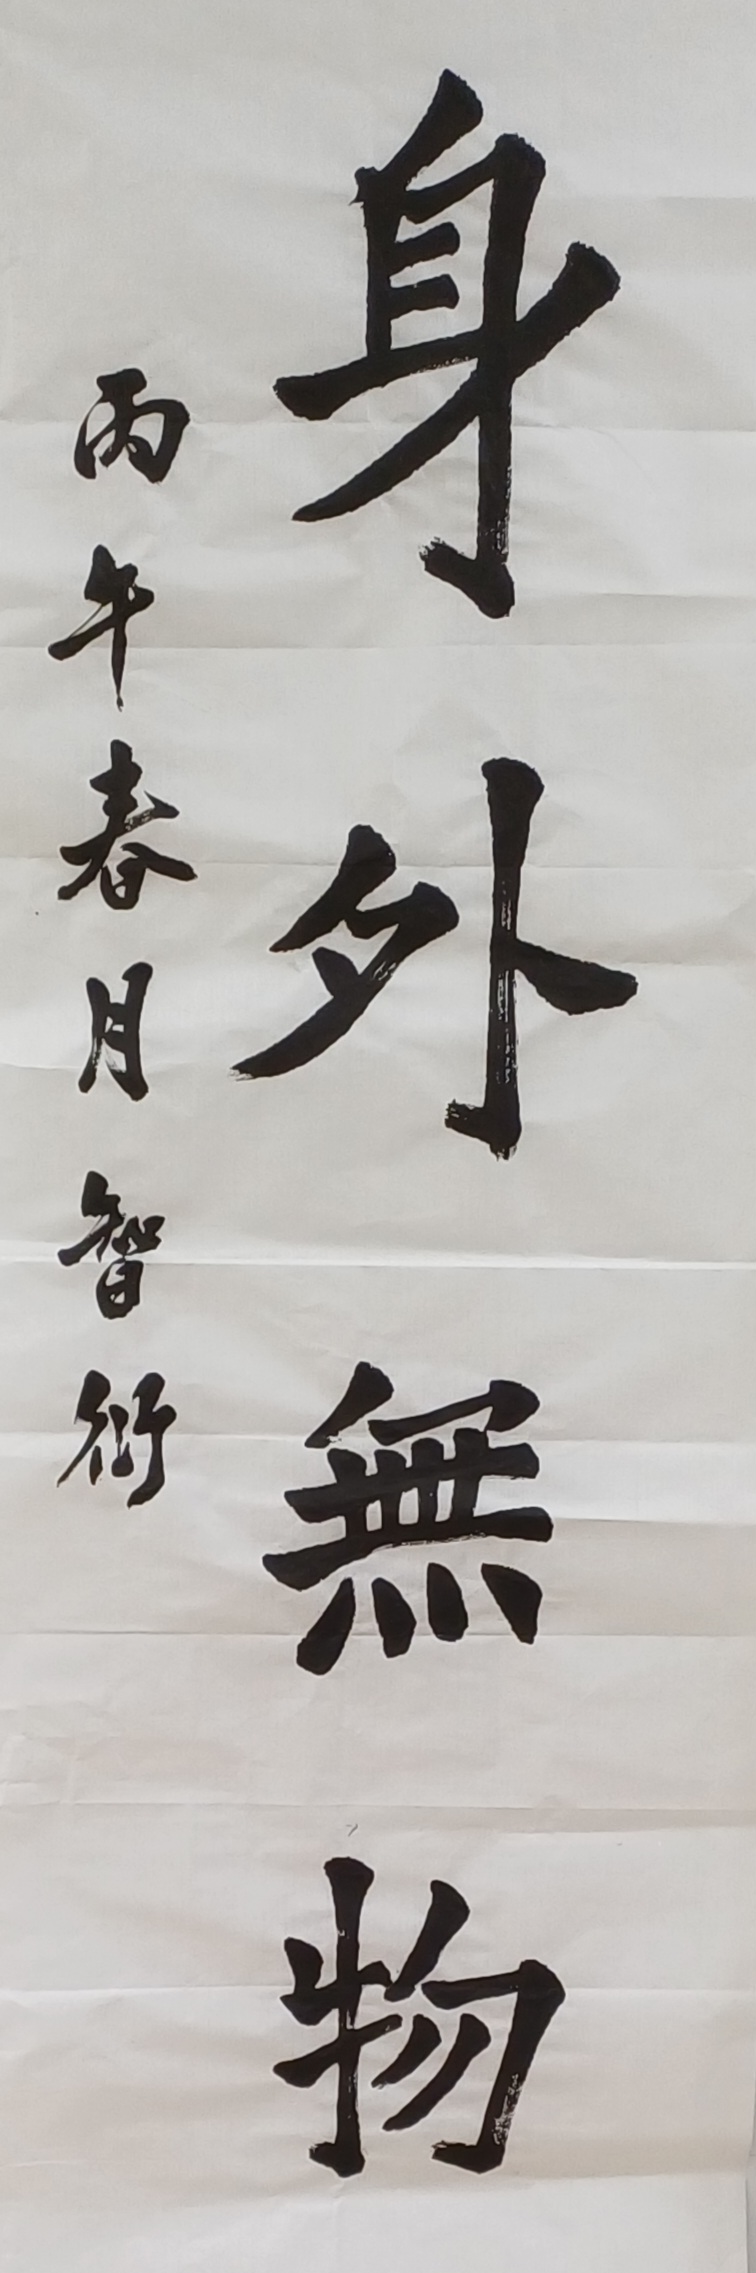 身外無物
丙午春月智衍